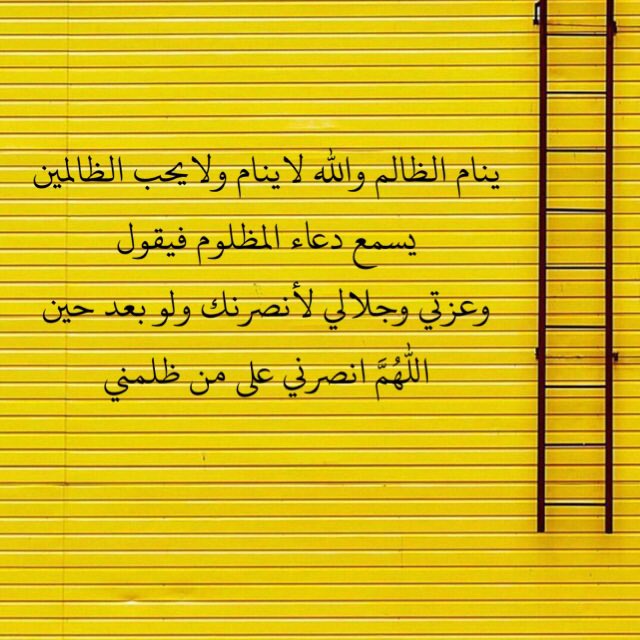 ينام الظالم والله لاينام ولايحب الظالمين
يسمع دعاء المظلوم فيقول
وعزتي وجلالي لأنصرنك ولو بعد حين
اللَّهُمَّ انصرني على من ظلمني